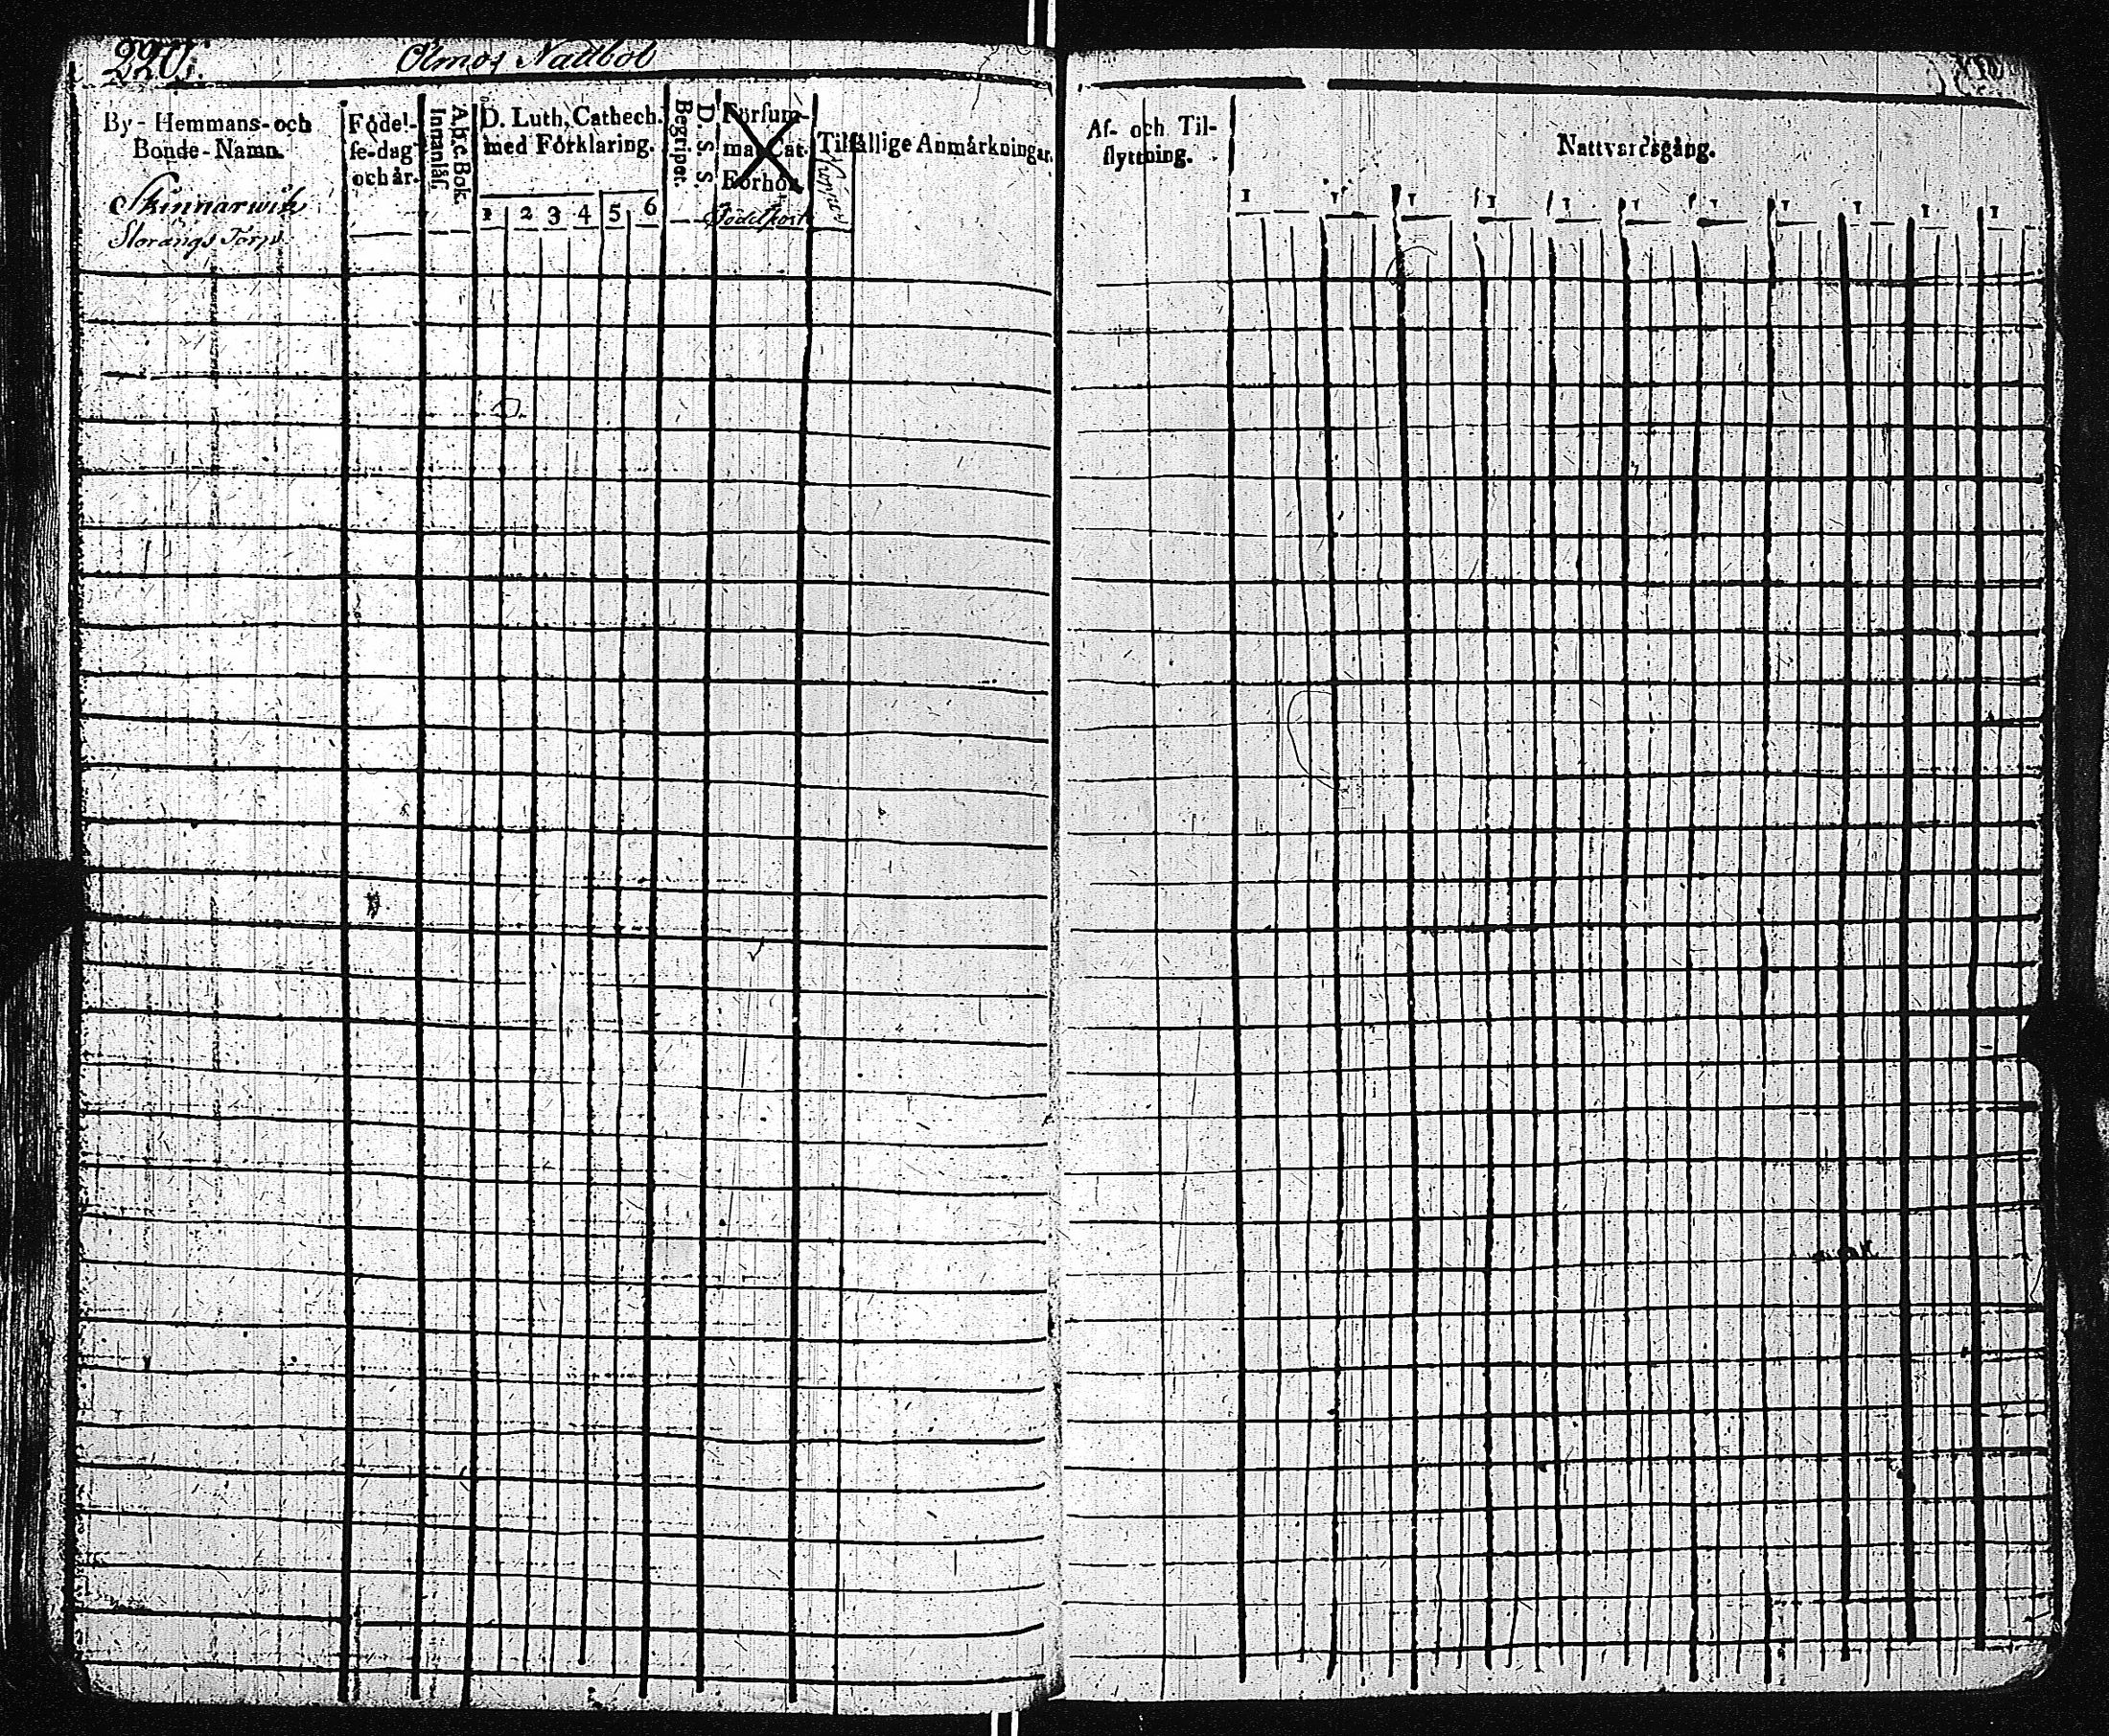 220.
Olmos Nadbol
By- Hemmans- och
Bonde-Namn.
Skinnarwik
Storängs Torp
Födel-
se-dag
och år.
A,b,c,Bok.
Innanläs.
D. Luth, Cathech.
med Förklaring.
1 2 3 4 5 6
D. S. S.
Begripet.
Försum-
mat Cat.
Förhör.
Födelseort
Tilfällige Anmärkningar.
Af- och Til-
flyttning.
Nattvardsgång.
1 1 1 1 1 1 1 1 1 1 1